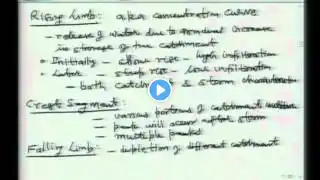 Rising Limb: a.k.a concentration curve
- release of water due to gradual increase
in storage of the catchment
Initially - slow rise - high infiltration
Later - steep rise - low infiltration
- both catchment & storm characteristics
Crest Segment:
- various portions of catchment
- peak will occur after storm
- multiple peaks
Falling Limb: - depletion of different catchment